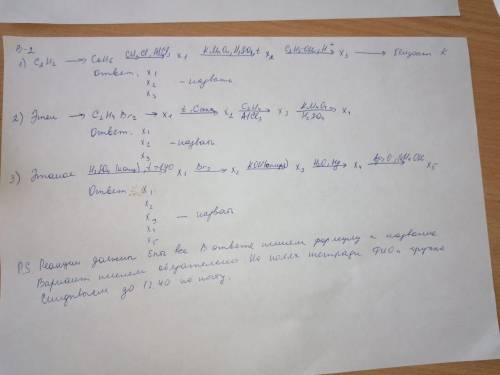 В-2
1) C₂H₂ → C₆H₆ CH₃Cl, AlCl₃ x₁ KMnO₄, H₂SO₄, t x₂ C₂H₅OH, H⁺ x₃ → Бензоат К
Ответ: x₁
x₂ - назвать
x₃
2) Этен → C₂H₄Br₂ → x₁ t, Cакт x₂ C₂H₄ AlCl₃ x₃ KMnO₄ H₂SO₄ x₄
Ответ: x₁
x₂ - назвать
x₃
3) Этанол H₂SO₄ (конц), t>140 x₁ Br₂ x₂ KOH(спирт) x₃ H₂O, Hg x₄ Ag₂O, NH₄OH x₅
Ответ: x₁
x₂
x₃ - назвать
x₄
x₅
P.S. Реакции должны быть все В ответе пишем формулу и название
Вариант пишем обязательно На полях тетради ФИО и группа
Скидываем до 12.40 на почту.